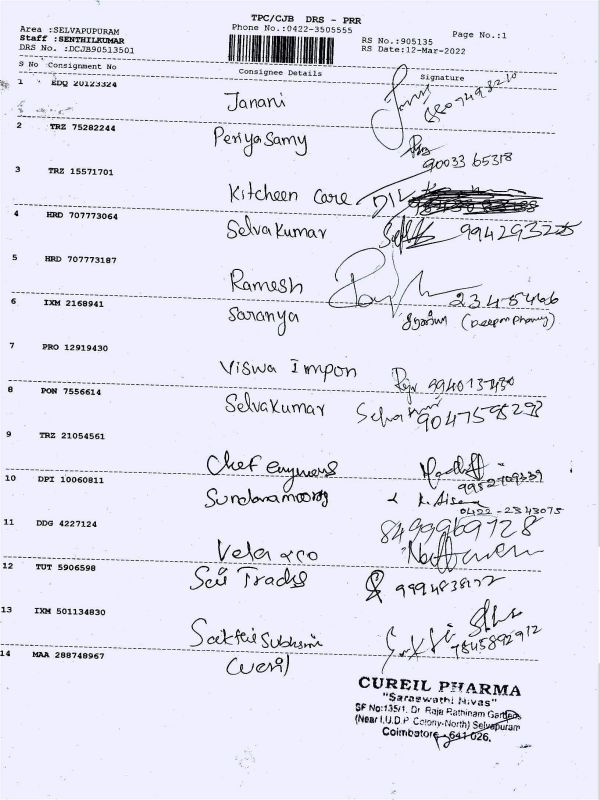 TPC/CJB DRS - PRR
Area :SELVAPUPURAM
Phone No.:0422-3505555
Page No.:1
Staff :SENTHILKUMAR
RS No.:905135
DRS No. :DCJB90513501
RS Date:12-Mar-2022
S No Consignment No Consignee Details Signature
1 EDQ 20123324 Janani
2 TRZ 75282244 Periyasamy
90033 65318
3 TRZ 15571701 Kitcheen Care
4 HRD 707773064 Selvakumar
5 HRD 707773187 Ramesh
6 IXM 2168941 Saranya
2345466
7 PRO 12919430 Viswa Impon
8 PON 7556614 Selvakumar
9047595293
9 TRZ 21054561 Chef
9952709339
10 DPI 10060811
0422-2343075
11 DDG 4227124 Vela & co
8499969728
12 TUT 5906598 Sai Trades
13 IXM 501134830
7845892912
14 MAA 288748967 Cureil
CUREIL PHARMA
"Saraswathi Nivas"
SF No:135/1, Dr. Raja Rathinam Gardens
(Near I.U.D.P Colony-North) Selvapuram
Coimbatore - 641 026.